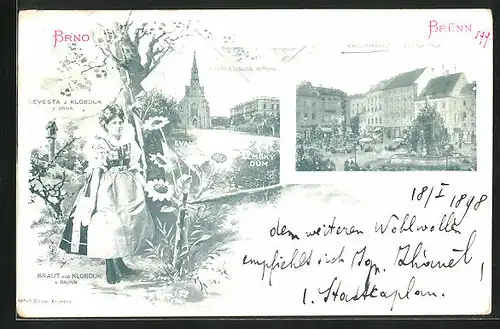 BRNO
BRÜNN
NEVĚSTA Z KLOBOUK
U BRNA
ZEMSKÝ
DŮM
BRAUT AUS KLOBOUK
B. BRÜNN
18/I 1898
dem weiteren Wohlwollen
empfiehlt sich Ign.
1. Stadtcaplan.